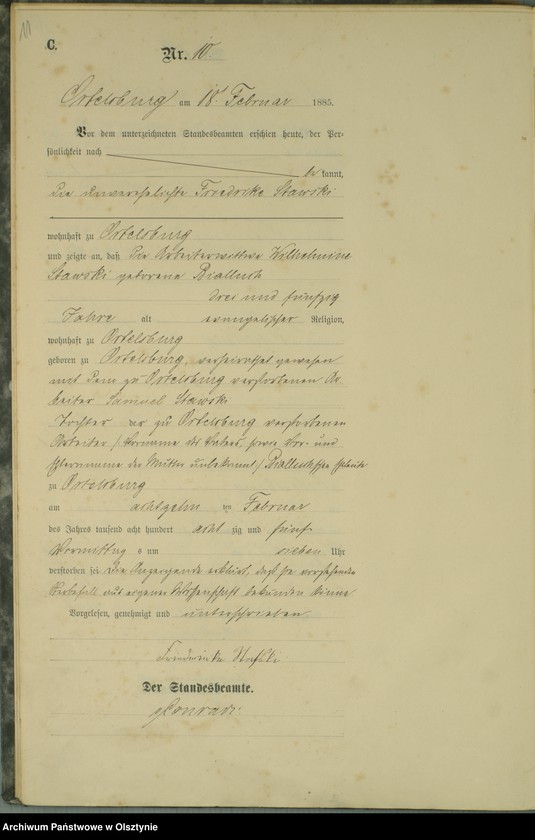 11
C.
Nr. 10.
Ortelsburg am 18. Februar 1885.
Vor dem unterzeichneten Standesbeamten erschien heute, der Per-
sönlichkeit nach
be kannt,
die unverehelichte Friedricke Stawski
wohnhaft zu Ortelsburg
und zeigte an, daß die Arbeiterwittwe Wilhelmine
Stawski geborene Bialluch
drei und fünfzig
Jahre alt evangelischer Religion,
wohnhaft zu Ortelsburg
geboren zu Ortelsburg, verheirathet gewesen
mit dem zu Ortelsburg verstorbenen Ar-
beiter Samuel Stawski
Tochter der zu Ortelsburg verstorbenen
Arbeiter / Vorname des Vaters, sowie Vor- und
Vatername der Mutter unbekannt / Bialluch'schen Eheleute
zu Ortelsburg
am achtzehn ten Februar
des Jahres tausend acht hundert acht zig und fünf
Vormittag s um sieben Uhr
verstorben sei. Die Anzeigende erklärt, daß sie vorstehenden
Sterbefall aus eigener Wissenschaft bekunden könne
Vorgelesen, genehmigt und unterschrieben
Friedericke Stafski
Der Standesbeamte.
Archiwum Państwowe w Olsztynie